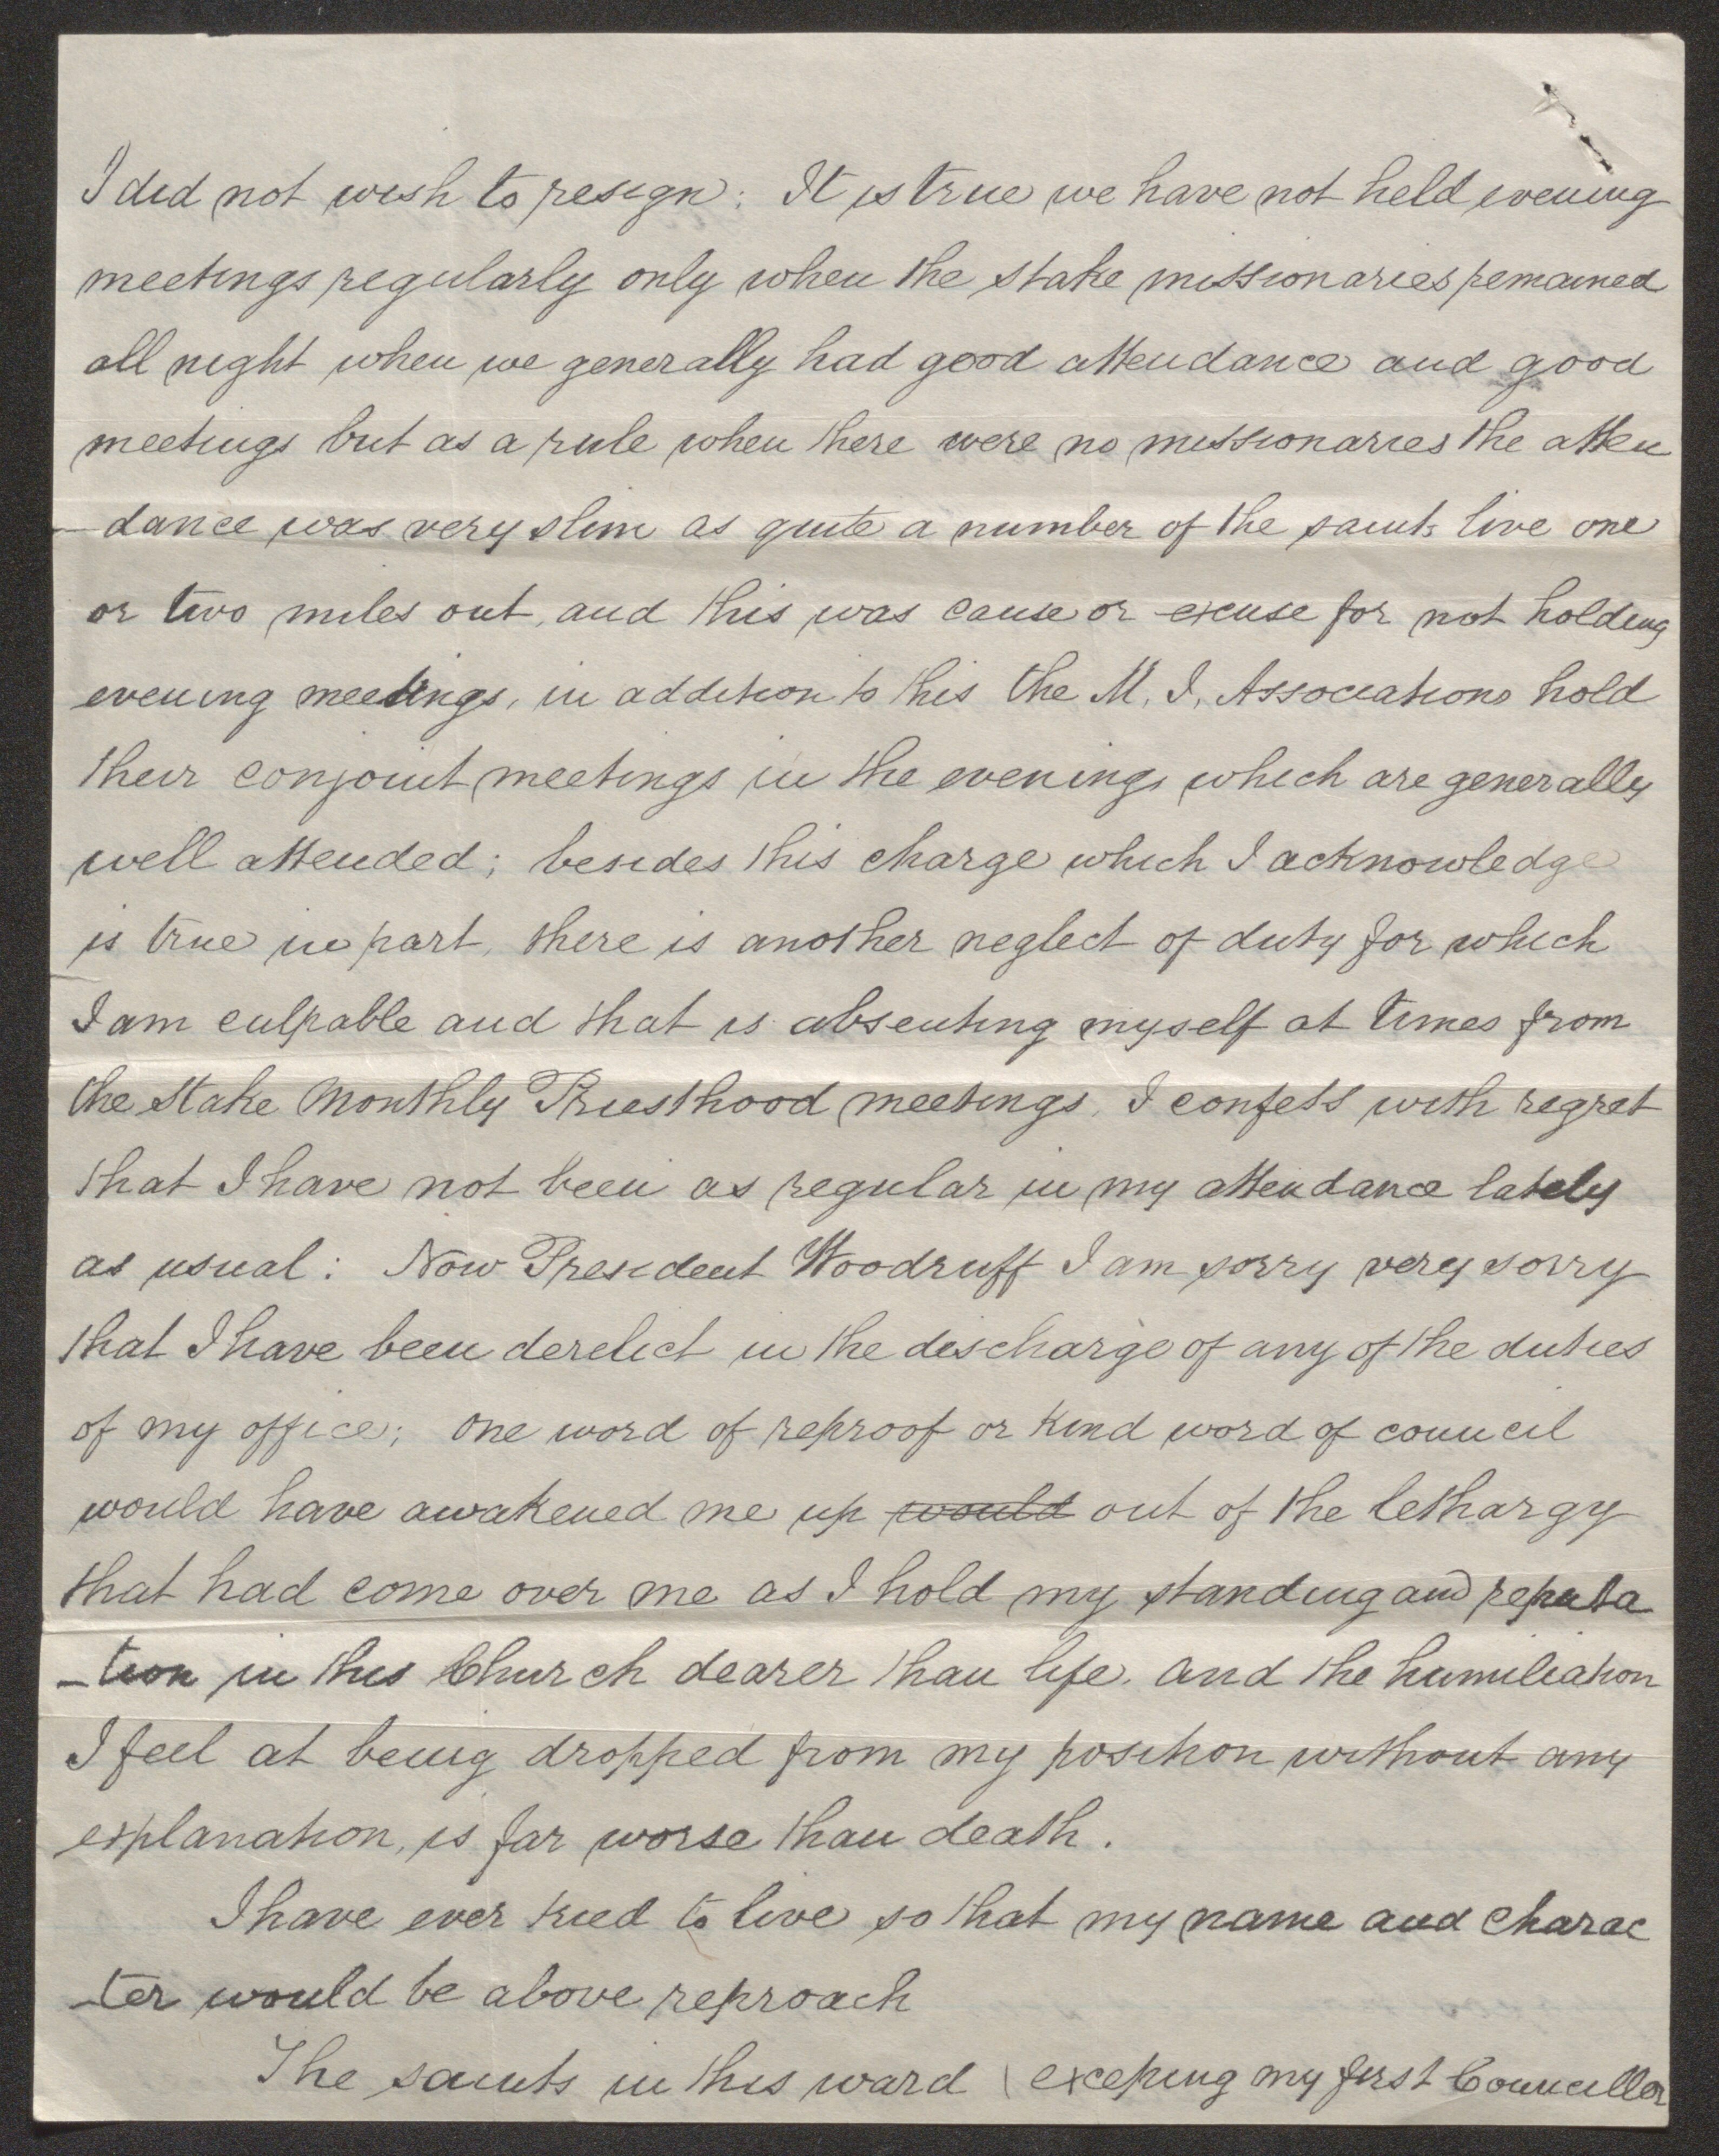 I did not wish to resign: It is true we have not held evening
meetings regularly only when the stake missionaries remained
all night when we generally had good attendance and good
meetings but as a rule when there were no missionaries the atten
-dance was very slim as quite a number of the saints live one
or two miles out, and this was cause or excuse for not holding
evening meetings, in addition to this the M. I. Associations hold
their conjoint meetings in the evening, which are generally
well attended; besides this charge which I acknowledge
is true in part, there is another neglect of duty for which
I am culpable and that is absenting myself at times from
the Stake Monthly Priesthood meetings, I confess with regret
that I have not been as regular in my attendance lately
as usual: Now President Woodruff I am sorry very sorry
that I have been derelict in the discharge of any of the duties
of my office; one word of reproof or kind word of council
would have awakened me up would out of the lethargy
that had come over me as I hold my standing and reputa
-tion in this Church dearer than life. and the humiliation
I feel at being dropped from my position without any
explanation, is far worse than death.
I have ever tried to live so that my name and charac
-ter would be above reproach
The saints in this ward (exceping my first Counciller